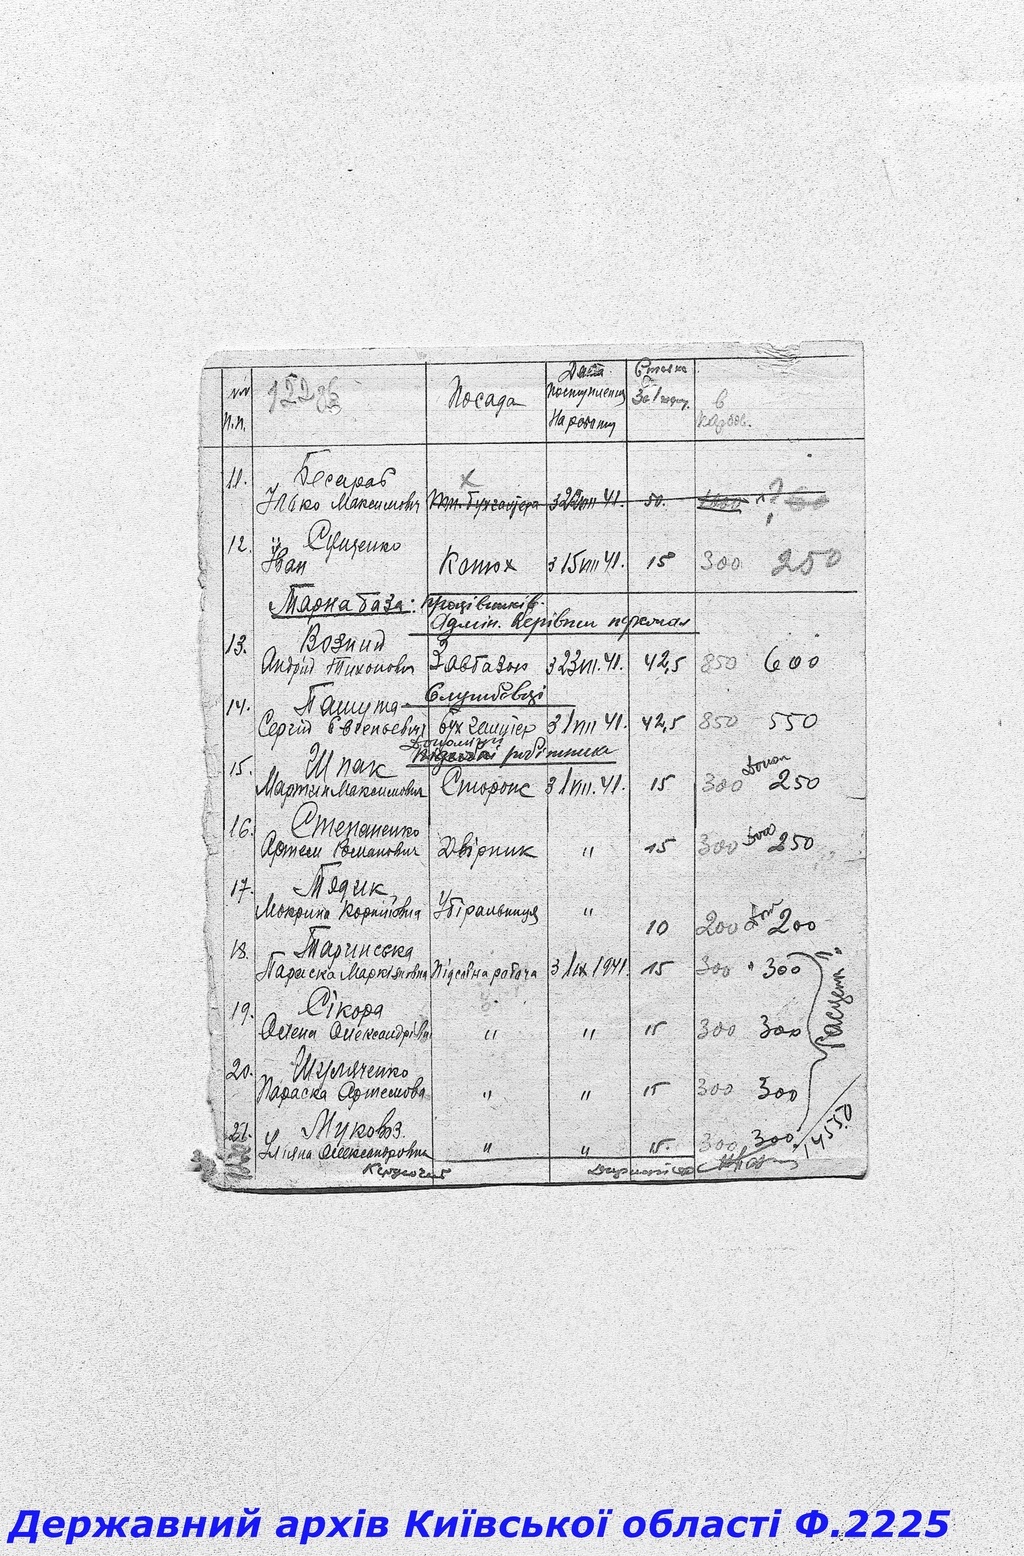 п.п.
Посада
Дата
поступлення
На роботу
Ставка
За 1 годину.
в
карбов.
11. Бесараб
Ілько Максимович бухгалтера з 22 VII 41. 50.
12. Сущенко
Іван Конюх з 15 VII 41. 15 300 250
Тарна база:
Адмін. Керівний персонал
13. Возний
Андрій Тихонович Завбазою з 23 VII. 41. 42,5 850 600
Службовці
14. Пашута
Сергій Євгеньевич бухгалтер з 1 VIII 41. 42,5 850 550
Допоміжні робітники
15. Шпак
Мартин Максимович Сторож з 1 VIII. 41. 15 300 250
16. Степаненко
Артем Романович Двірник " 15 300 250
17. Тядик
Мокрина Корніївна Убіральниця " 10 200 200
18. Таринська
Параска Маркіяновна Підсобна робоча з 1 IX 1941. 15 300 " 300
19. Сікора
Олена Олександрівна " " 15 300 300
20. Шуляченко
Параска Артемова " " 15 300 300
21. Муковоз.
Уляна Олександровна " " 15. 300 300
Расцен.
14550
Державний архів Київської області Ф.2225